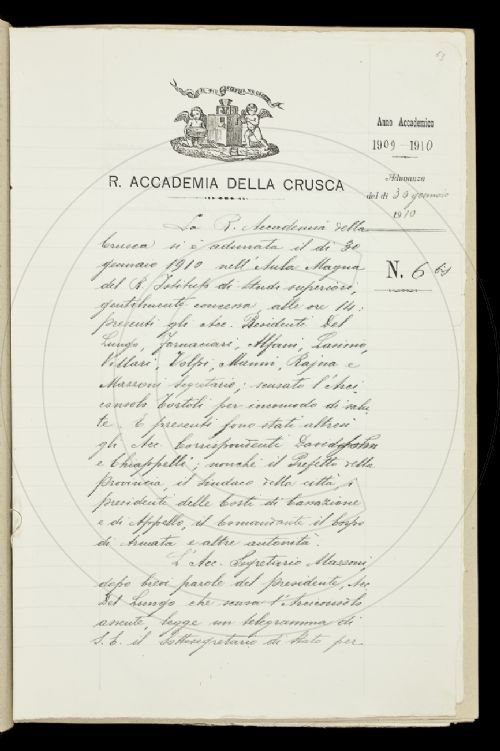 53
Anno Accademico
1909-1910
Adunanza
del dì 30 gennaio
1910
N. 6 bis
R. ACCADEMIA DELLA CRUSCA
La R. Accademia della
Crusca si è adunata il dì 30
gennaio 1910 nell'Aula Magna
del R. Istituto di studi superiori,
gentilmente concessa, alle ore 14:
presenti gli Acc. Residenti Del
Lungo, Fornaciari, Alfani, Lasinio,
Villari, Volpi, Manni, Rajna e
Mazzoni segretario; scusato l'Arci-
consolo Tortoli per incomodo di salu-
te. E presenti sono stati altresì
gli Acc. Corrispondenti
e Chiappelli; nonché il Prefetto della
Provincia, il Sindaco della città, i
presidenti delle Corti di Cassazione
e di Appello, il Comandante il Corpo
di Armata e altre autorità.
L'Acc. Segretario Mazzoni,
dopo brevi parole del presidente, Acc.
Del Lungo che scusa l'Arciconsolo
assente, legge un telegramma di
S. E. il Sottosegretario di Stato per